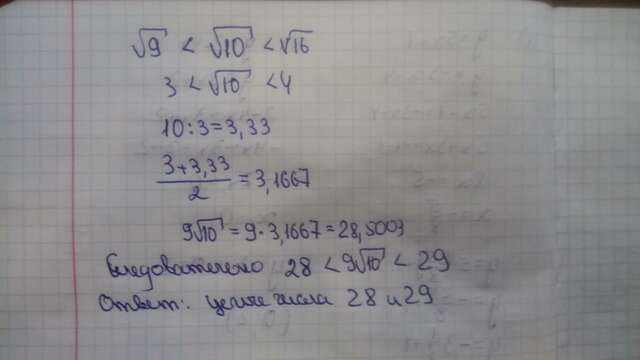 √9 < √10 < √16
3 < √10 < 4
10:3=3,33
(3+3,33)/2 = 3,1667
9√10 = 9·3,1667 = 28,5003
Следовательно 28 < 9√10 < 29
Ответ: целые числа 28 и 29